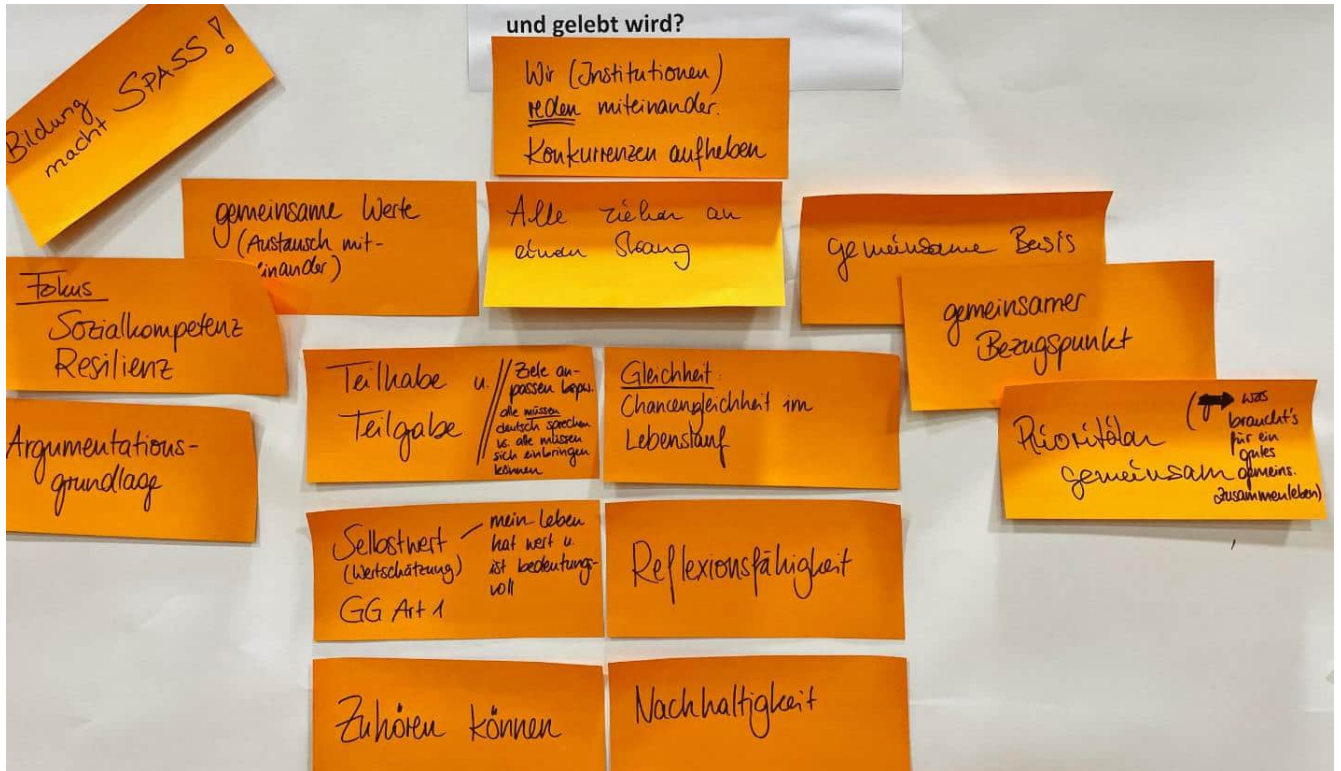 und gelebt wird?
Bildung
macht SPASS!
Wir (Institutionen)
reden miteinander.
Konkurrenzen aufheben
gemeinsame Werte
(Austausch mit-
einander)
Alle ziehen an
einen Strang
gemeinsame Basis
gemeinsamer
Bezugspunkt
Fokus
Sozialkompetenz
Resilienz
Teilhabe u.
Teilgabe
Ziele an-
passen bspw.
alle müssen
deutsch sprechen
vs. alle müssen
sich einbringen
können
Gleichheit:
Chancengleichheit im
Lebenslauf
Prioritäten
gemeinsam
(➡ was
braucht's
für ein
gutes
gemeins.
Zusammenleben)
Argumentations-
grundlage
Selbstwert
(Wertschätzung)
GG Art 1
mein Leben
hat wert u.
ist bedeutungs-
voll
Reflexionsfähigkeit
Zuhören können
Nachhaltigkeit